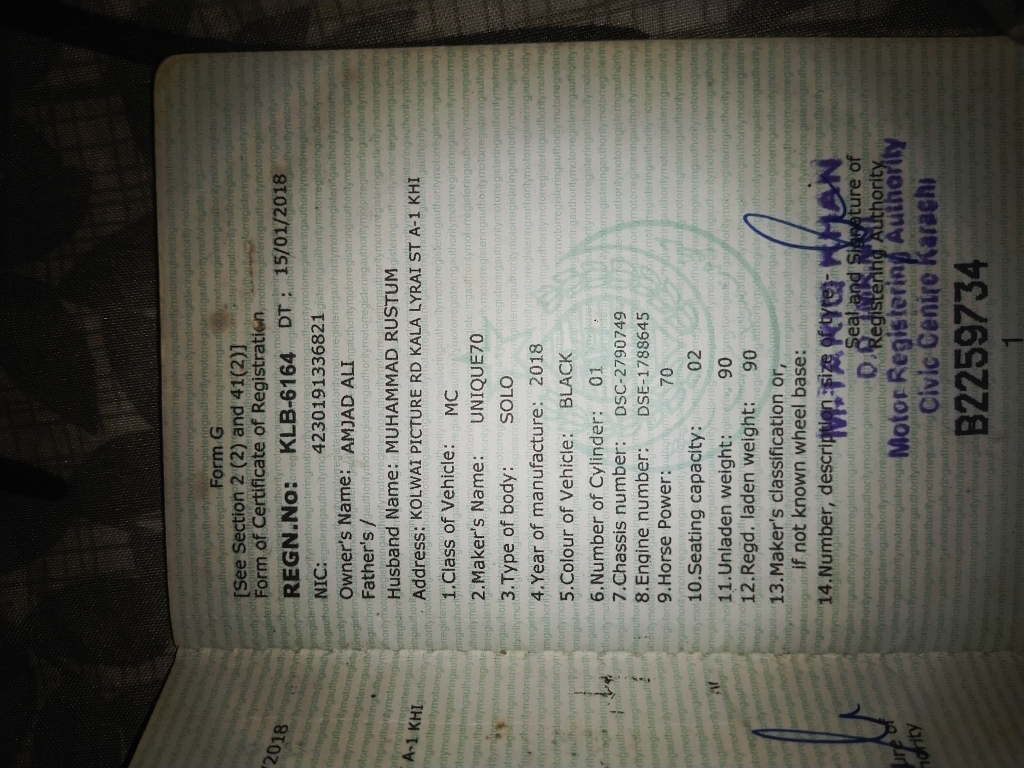 Form G
[See Section 2 (2) and 41(2)]
Form of Certificate of Registration
REGN.No: KLB-6164 DT : 15/01/2018
NIC: 4230191336821
Owner's Name: AMJAD ALI
Father's /
Husband Name: MUHAMMAD RUSTUM
Address: KOLWAI PICTURE RD KALA LYRAI ST A-1 KHI
1.Class of Vehicle: MC
2.Maker's Name: UNIQUE70
3.Type of body: SOLO
4.Year of manufacture: 2018
5.Colour of Vehicle: BLACK
6.Number of Cylinder: 01
7.Chassis number: DSC-2790749
8.Engine number: DSE-1788645
9.Horse Power: 70
10.Seating capacity: 02
11.Unladen weight: 90
12.Regd. laden weight: 90
13.Maker's classification or,
if not known wheel base:
14.Number, description size of tyre:-
KHAN
Seal and Signature of
Registering Authority
Motor Registering Authority
Civic Centre Karachi
B2259734
1
/2018
A-1 KHI